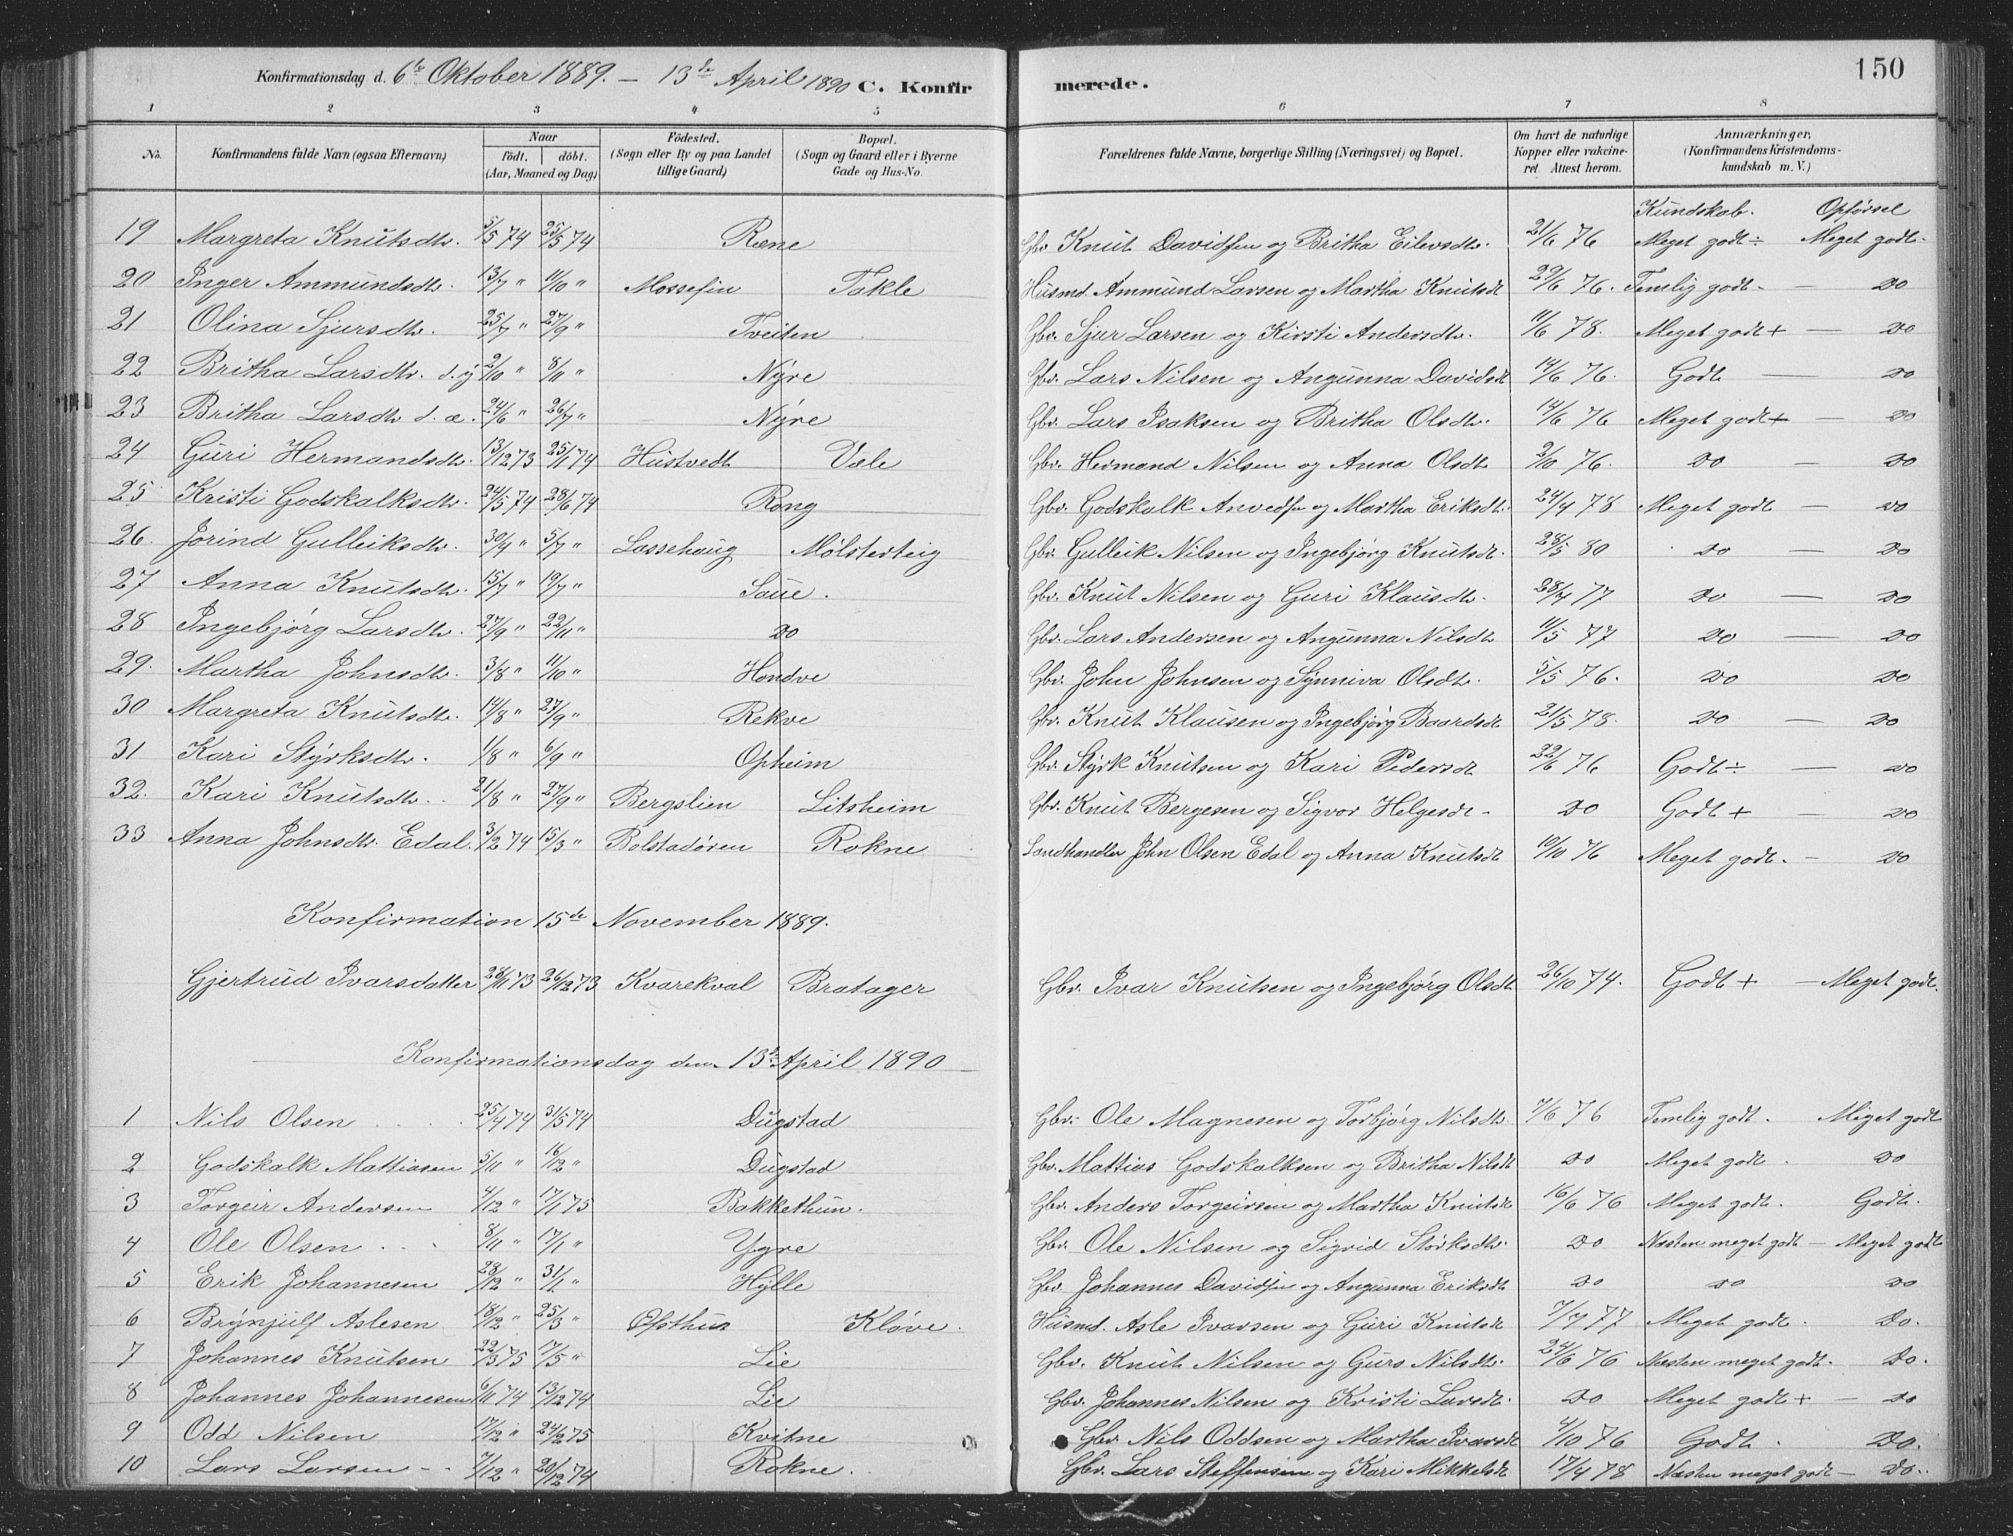 Konfirmationsdag d. 6te Oktober 1889. — 13de April 1890 C. Konfirmerede. 150
1 2 3 4 5 6 7 8
No. Konfirmandens fulde Navn (ogsaa Efternavn) Naar födt. döbt. (Aar, Maaned og Dag) Födested. (Sogn eller By og paa Landet tillige Gaard) Bopæl. (Sogn og Gaard eller i Byerne Gade og Hus-No. Forældrenes fulde Navne, borgerlige Stilling (Næringsvei) og Bopæl. Om havt de naturlige Kopper eller vakcineret. Attest herom. Anmærkninger, (Konfirmandens Kristendomskundskab m. V.)
Kundskab. Opförsel
19 Margreta Knutsdtr. 5/5 74 25/5 74 Rene Gbr. Knut Davidsen og Britha Eilevsdtr. 21/6 76 Meget godt ÷ Meget godt.
20 Inger Ammundsdtr. 13/7 " 11/10 " Mossefin Takle Husmd. Ammund Larsen og Martha Knutsdt 29/6 76. Temlig godt. — do
21 Olina Sjursdtr. 25/7 " 27/9 " Tveiten Gbr. Sjur Larsen og Kirsti Andersdtr. 11/6 78. Meget godt + — do
22 Britha Larsdtr. d. y 2/10 " 8/11 " Nyre Gbr. Lars Nilsen og Angunna Davidsdt 14/6 76. Godt — do
23 Britha Larsdtr d. æ. 24/6 " 26/7 " Nyre Gbr. Lars Isaksen og Britha Olsdtr. 14/6 76 Meget godt + — do
24 Guri Hermandsdtr. 13/12 73 25/1 74 Hustvedt Væle Gbr. Hermand Nilsen og Anna Olsdtr 2/10 76. do — do
25 Kristi Godskalksdtr. 24/5 74 28/6 74 Rong Gbr. Godskalk Anvedsen og Martha Eriksdt. 24/4 78 Meget godt — do
26. Jorind Gulleiksdtr. 30/4 " 5/7 " Lassehaug Mølsterteig Gbr. Gulleik Nilsen og Ingebjørg Knutsdt. 28/5 80 do — do
27 Anna Knutsdtr. 15/7 " 19/7 " Saue. Gbr. Knut Nilsen og Guri Klausdtr. 28/4 77 do — do
28 Ingebjørg Larsdtr. 27/9 " 22/11 " do Gbr. Lars Andersen og Angunna Nilsdtr 11/5 77 do — do
29. Martha Johnsdtr. 3/8 " 11/10 " Hondve Gbr. John Johnsen og Synniva Olsdtr. 5/5 76. do do
30 Margreta Knutsdtr. 14/8 " 27/9 " Rekve Gbr. Knut Klausen og Ingebjørg Baardsdt 21/5 78. do — do
31 Kari Styrksdtr. 1/8 " 6/9 " Opheim Gbr. Styrk Knutsen og Kari Pedersdt 22/6 76 Godt ÷ — do
32. Kari Knutsdtr. 21/8 " 27/9 " Bergslien Litsheim Gbr. Knut Bergesen og Sigvor Helgesdt. do Godt + — do
33 Anna Johnsdtr. Edal. 3/2 74 15/3 " Bolstadøren Rokne Landhandler John Olsen Edal og Anna Knutsdt 10/10 76 Meget godt. — do
Konfirmation 15de November 1889.
Gjertrud Ivarsdatter 28/11 73 26/12 73 Kvarekval Bratager Gbr. Ivar Knutsen og Ingebjørg Olsdt. 26/10 74. Godt + — Meget godt.
Konfirmationsdag den 13de April 1890
1 Nils Olsen 25/4 74 31/5 74 Dugstad Gbr. Ole Magnesen og Torbjørg Nilsdtr. 7/6 76 Temlig godt. Meget godt
2 Godskalk Mattiasen 5/11 " 6/12 " Dugstad Gbr. Mattias Godskalksen og Britha Nilsdt do Meget godt. do
3 Torgeir Andersen 4/12 " 17/1 75 Bakkethun. Gbr. Anders Torgeirsen og Martha Knutsdt 16/6 76 Meget godt. Godt.
4 Ole Olsen 8/11 " 17/1 " Ygre Gbr. Ole Nilsen og Sigrid Störksdtr. do Næsten meget godt — Meget godt
5 Erik Johannesen 28/12 " 31/1 " Hylle Gbr Johannes Davidsen og Angunna Eriksdt do do do
6 Brynjulf Aslesen 18/12 " 25/3 " Efsthus Kløve. Husmd. Asle Ivarsen og Guri Knutsdt 7/7 77 Meget godt. Do.
7 Johannes Knutsen 22/3 75 17/5 " Lie Gbr. Knut Nilsen og Guro Nilsdtr. 24/6 76 Næsten meget godt. Do.
8 Johannes Johannesen 6/11 74 13/12 74 Lie Gbr. Johannes Nilsen og Kristi Larsdt. do Meget godt + — do
9 Odd Nilsen 17/12 " 24/2 75 Kvitne Gbr. Nils Oddsen og Martha Ivarsdt 4/10 76 Godt. Do.
10 Lars Larsen 7/12 " 20/12 74 Rokne. Gbr. Lars Steffensen og Kari Mikkelsdt 17/4 78 Næsten meget godt — Do.